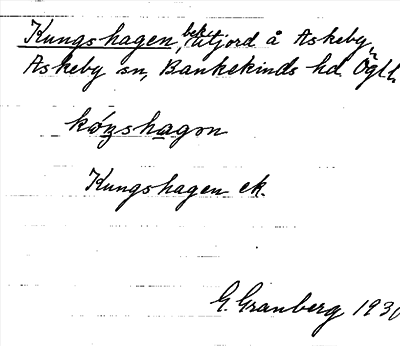 Kungshagen, bet. utjord å Askeby,
Askeby sn, Bankekinds hd. Ögtl.
kóŋshagon
Kungshagen ek.
G. Granberg 1930